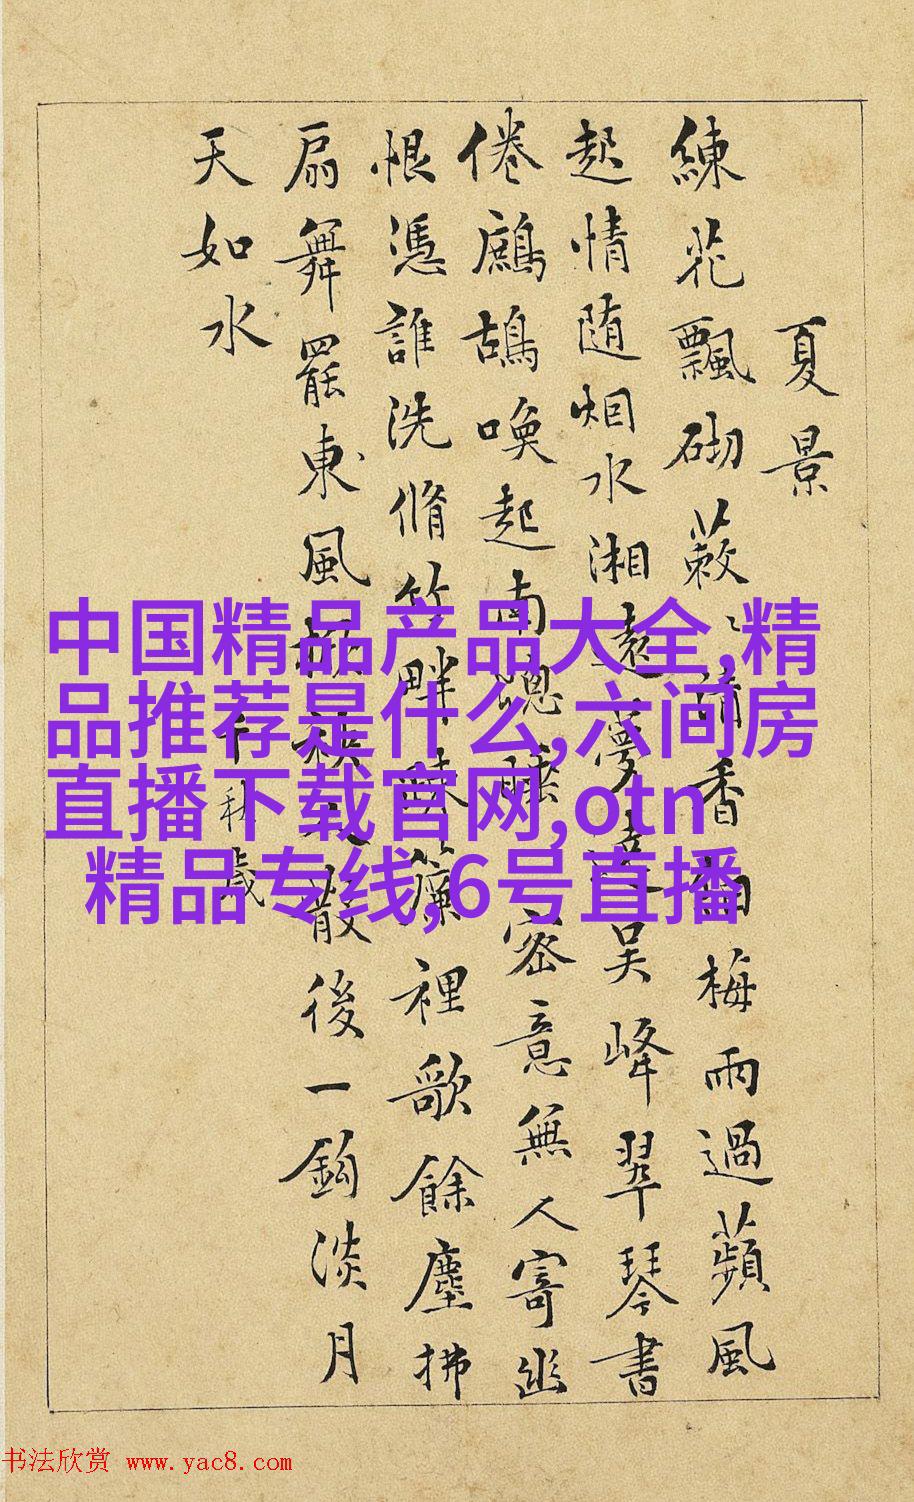 夏景
練花飄砌蔌、清香細梅雨過蘋風
起情随烟水湘遠夢遶吴峰翠琴書
倦鷓鴣喚起南窻睡密意無人寄幽
恨憑誰洗脩竹畔疎簾裡歌餘塵拂
扇舞罷東風掀袂人散後一鈎淡月
天如水
千秋歲
中国精品产品大全,精
品推荐是什么,六间房
直播下载官网,otn
精品专线,6号直播
书法欣赏 www.yac8.com